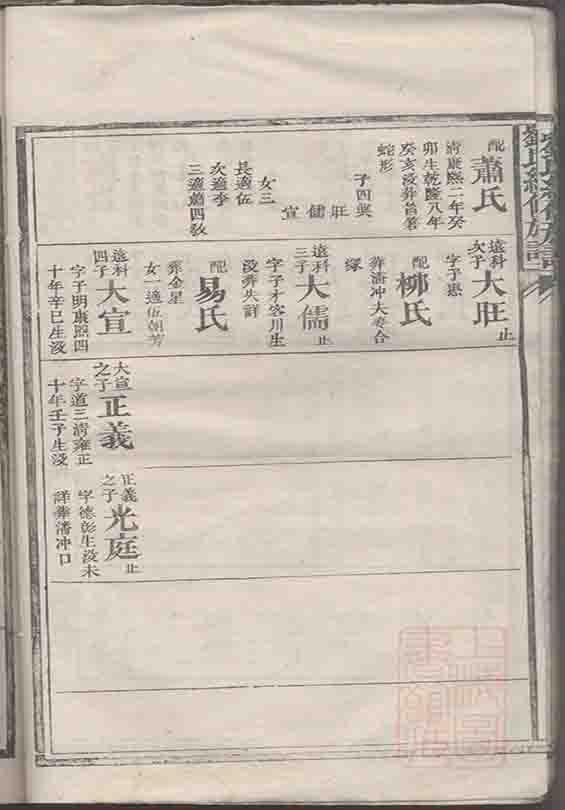 劉氏續修族譜
配
蕭氏
清康熙二年癸
卯生乾隆八年
癸亥没葬旨著
蛇形
子四奐
旺
儒
宣
女三
長適伍
次適李
三適蕭四教
遠科
次子
大旺止
字子懋
配
柳氏
葬潘冲大麥合
遠科
三子
大儒止
字子才客川生
没葬失詳
配
易氏
葬金星
女一適伍朝芳
遠科
四子
大宣
字子明康熙四
十年辛巳生没
大宣
之子
正義
字道三清雍正
十年壬子生没
正義
之子
光庭止
字德彰生没未
詳葬潘冲口